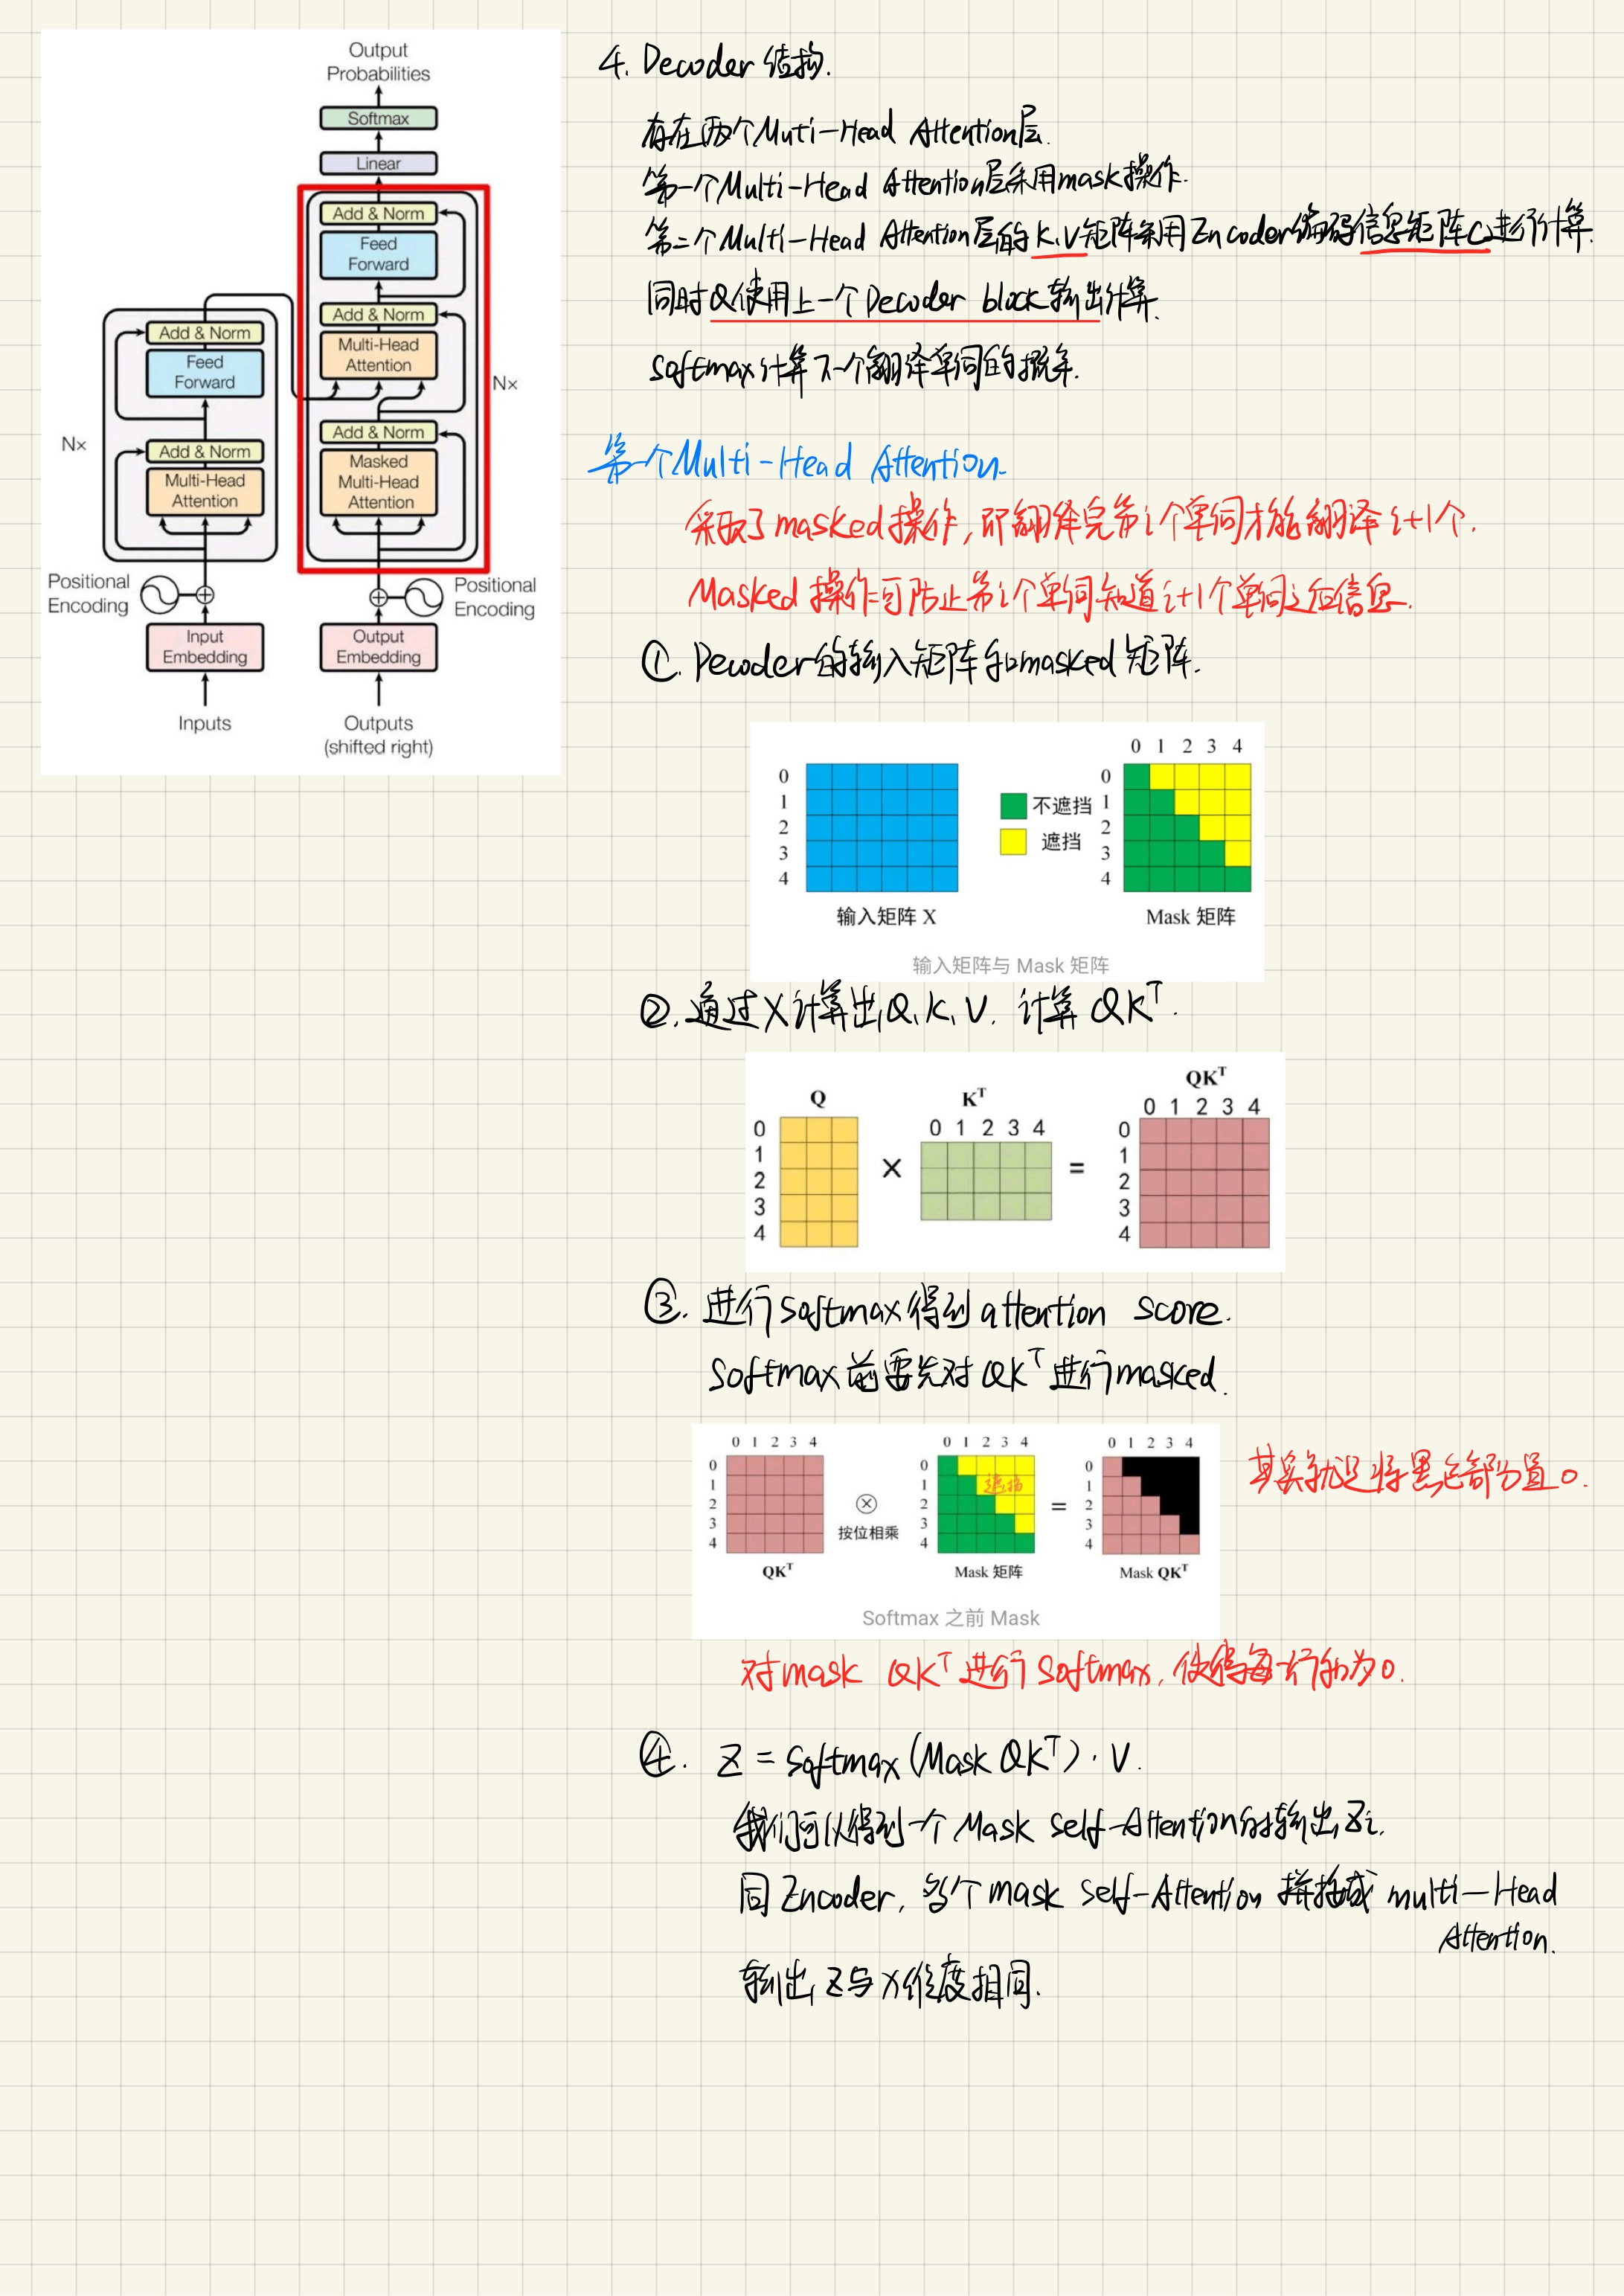 Output
Probabilities
Softmax
Linear
Add & Norm
Feed
Forward
Add & Norm
Multi-Head
Attention
Add & Norm
Masked
Multi-Head
Attention
Nx
Add & Norm
Feed
Forward
Nx
Add & Norm
Multi-Head
Attention
Positional
Encoding
Positional
Encoding
Input
Embedding
Output
Embedding
Inputs
Outputs
(shifted right)
4. Decoder 结构.
存在两个Muti-Head Attention层.
第一个Multi-Head Attention层采用mask操作.
第二个Multi-Head Attention层的K,V矩阵采用Encoder编码信息矩阵C进行计算.
同时Q使用上一个Decoder block输出计算.
softmax计算下一个翻译单词的概率.
第一个Multi-Head Attention.
采取了masked操作,即翻译完第i个单词才能翻译i+1个.
Masked操作可防止第i个单词知道i+1个单词之后信息.
①. Decoder的输入矩阵和masked矩阵.
0 1 2 3 4
0
1
2
3
4
不遮挡
遮挡
0
1
2
3
4
输入矩阵 X
Mask 矩阵
输入矩阵与 Mask 矩阵
②.通过X计算出Q,K,V. 计算QK^T.
Q
K^T
QK^T
0 1 2 3 4
0 1 2 3 4
0
1
2
3
4
×
=
0
1
2
3
4
③. 进行softmax得到attention score.
softmax前要先对QK^T进行masked.
0 1 2 3 4
0 1 2 3 4
0 1 2 3 4
0
1
2
3
4
⊗
按位相乘
0
1
2
3
4
遮挡
=
0
1
2
3
4
QK^T
Mask 矩阵
Mask QK^T
Softmax 之前 Mask
其实就是将黑色部分置0.
对mask QK^T进行softmax,使得每一行和为0.
④. Z = softmax(Mask QK^T)·V.
我们可以得到一个Mask self-Attention的输出Zi.
同Encoder,多个mask self-Attention 拼接成 multi-Head
Attention.
输出Z与X维度相同.